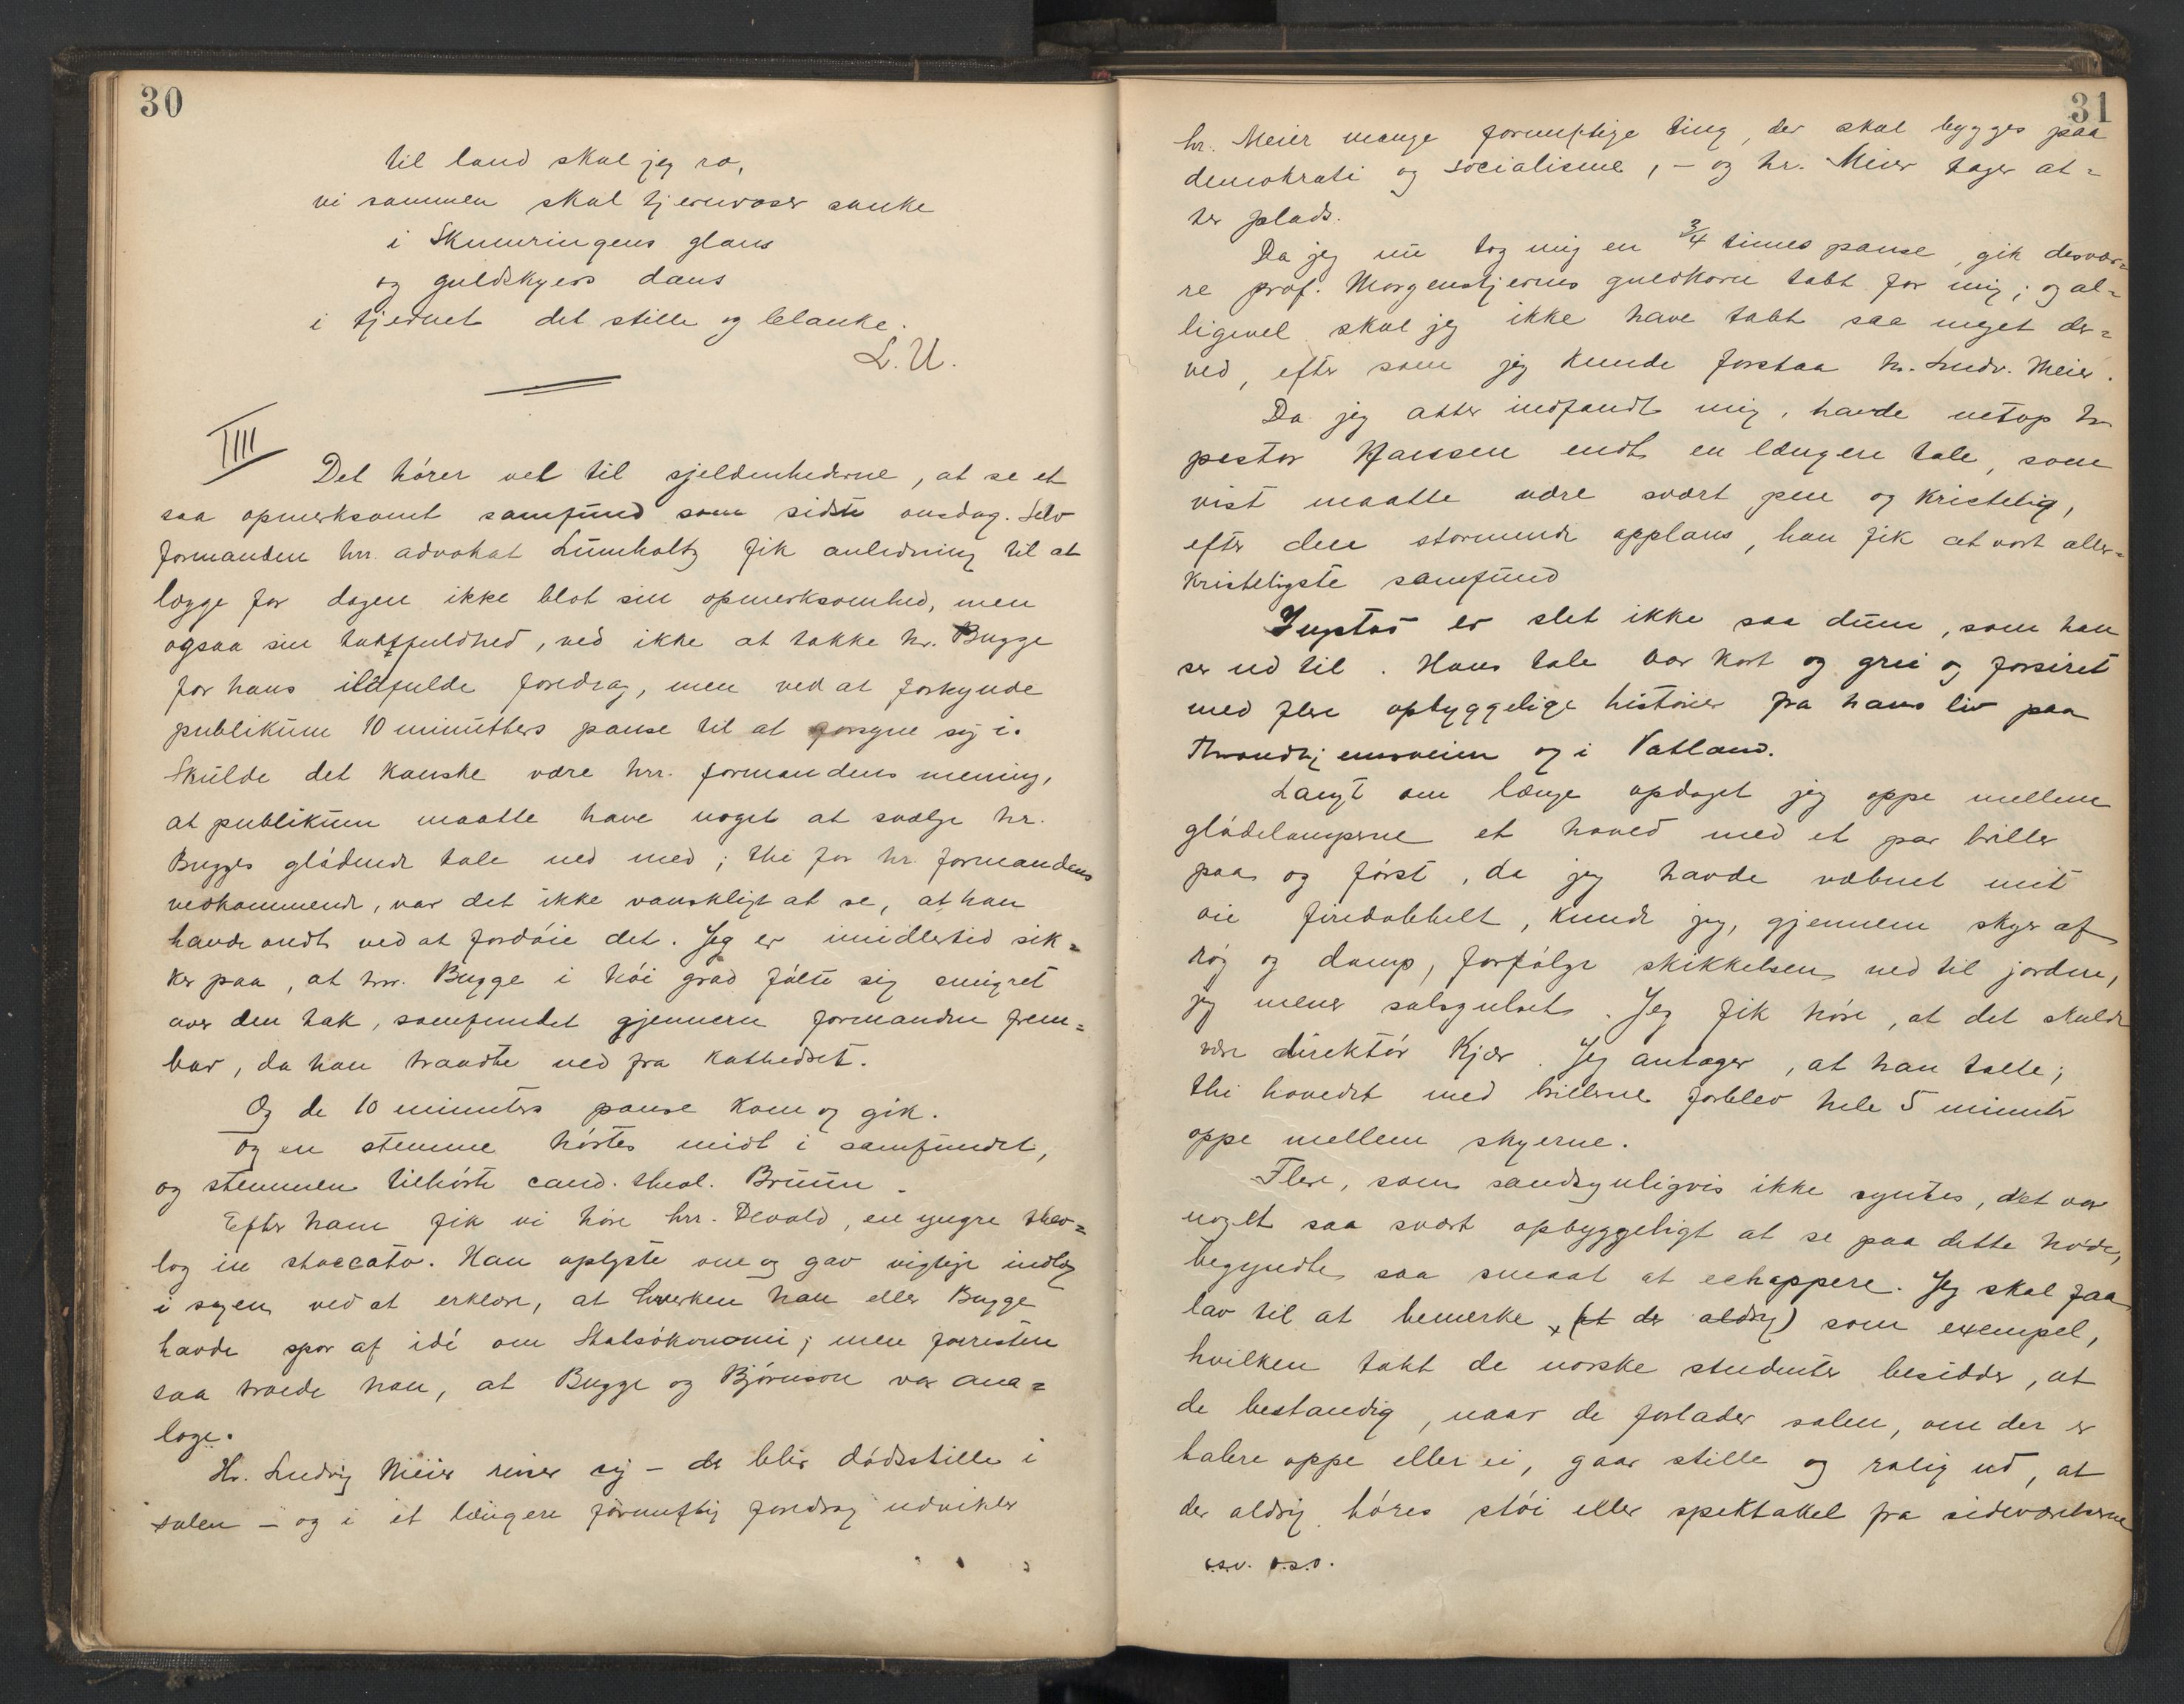 30
til land skal jeg ro,
vi sammen skal tjernroser sanke
i Skumringens glans
og guldskyers dans
i tjernet det stille og blanke.
L. U.
IIII
Det hører vel til sjeldenhederne, at se et
saa opmerksomt samfund som sidste onsdag. Selv
formanden hrr. advokat Lumholtz fik anledning til at
lægge for dagen ikke blot sin opmerksomhed, men
ogsaa sin taktfuldhed, ved ikke at takke hr. Bugge
for hans ildfulde foredrag, men ved at forkynde
publikum 10 minutters pause til at forsyne sig i.
Skulde det kanske være hrr. formandens mening,
at publikum maatte have noget at svælge hr.
Bugges glødende tale ned med; thi for hr. formandens
vedkommende, var det ikke vanskligt at se, at han
havde ondt ved at fordøie det. Jeg er imidlertid sik=
ker paa, at hrr. Bugge i høi grad følte sig smigret
over den tak, samfundet gjennem formanden frem=
bar, da han traadte ned fra kathedret.
Og de 10 minuters pause kom og gik.
og en stemme hørtes midt i samfundet,
og stemmen tilhørte cand. theol. Bruun.
Efter ham fik vi høre hrr. Devold, en yngre theo=
log in staccato. Han oplyste om og gav vigtige indlæg
i sagen ved at erklære, at hverken han eller Bugge
havde spor af idé om Statsøkonomi; men forresten
saa troede han, at Bugge og Bjørnson var ana=
loge.
Hr. Ludvig Meier reiser sig – der blir dødsstille i
salen – og i et længere fornuftig foredrag udvikler
31
hr. Meier mange fornuftige ting, der skal bygges paa
demokrati og socialisme, – og hr. Meier tager at=
ter plads.
Da jeg nu tog mig en 3/4 times pause, gik desvær=
re prof. Morgenstjernes guldkorn tabt for mig; og al=
ligevel skal jeg ikke have tabt saa meget der=
ved, efter som jeg kunde forstaa hr. Ludv. Meier.
Da jeg atter indfandt mig, havde netop hr
pastor Hanssen endt en længere tale, som
vist maatte være svært pen og kristelig,
efter den stormende applaus, han fik at vort aller=
kristeligste samfund
Gustas er slet ikke saa dum, som han
ser ud til. Hans tale var kort og grei og forsiret
med flere opbyggelige historier fra hans liv paa
Throndhjemsveien og i Vatland.
Langt om længe opdaget jeg oppe mellem
glødelamperne et hoved med et par briller
paa og først, da jeg havde væbnet mit
øie firedobbelt, kunde jeg, gjennem skyer af
røg og damp, forfølge skikkelsen ned til jorden,
jeg mener salsgulvet. Jeg fik høre, at det skulde
være direktør Kjær. Jeg antager, at han talte;
thi hovedet med brillerne forblev hele 5 minuter
oppe mellem skyerne.
Flere, som sandsynligvis ikke syntes, det var
noget saa svært opbyggeligt at se paa dette hoved,
begyndte saa smaat at echappere. Jeg skal faa
lov til at bemerke (at der aldrig) som exempel,
hvilken takt de norske studenter besidder, at
de bestandig, naar de forlader salen, om der er
talere oppe eller ei, gaar stille og rolig ud, at
der aldrig høres støi eller spektakkel fra sideværelserne
o.s.v. o.s.v.